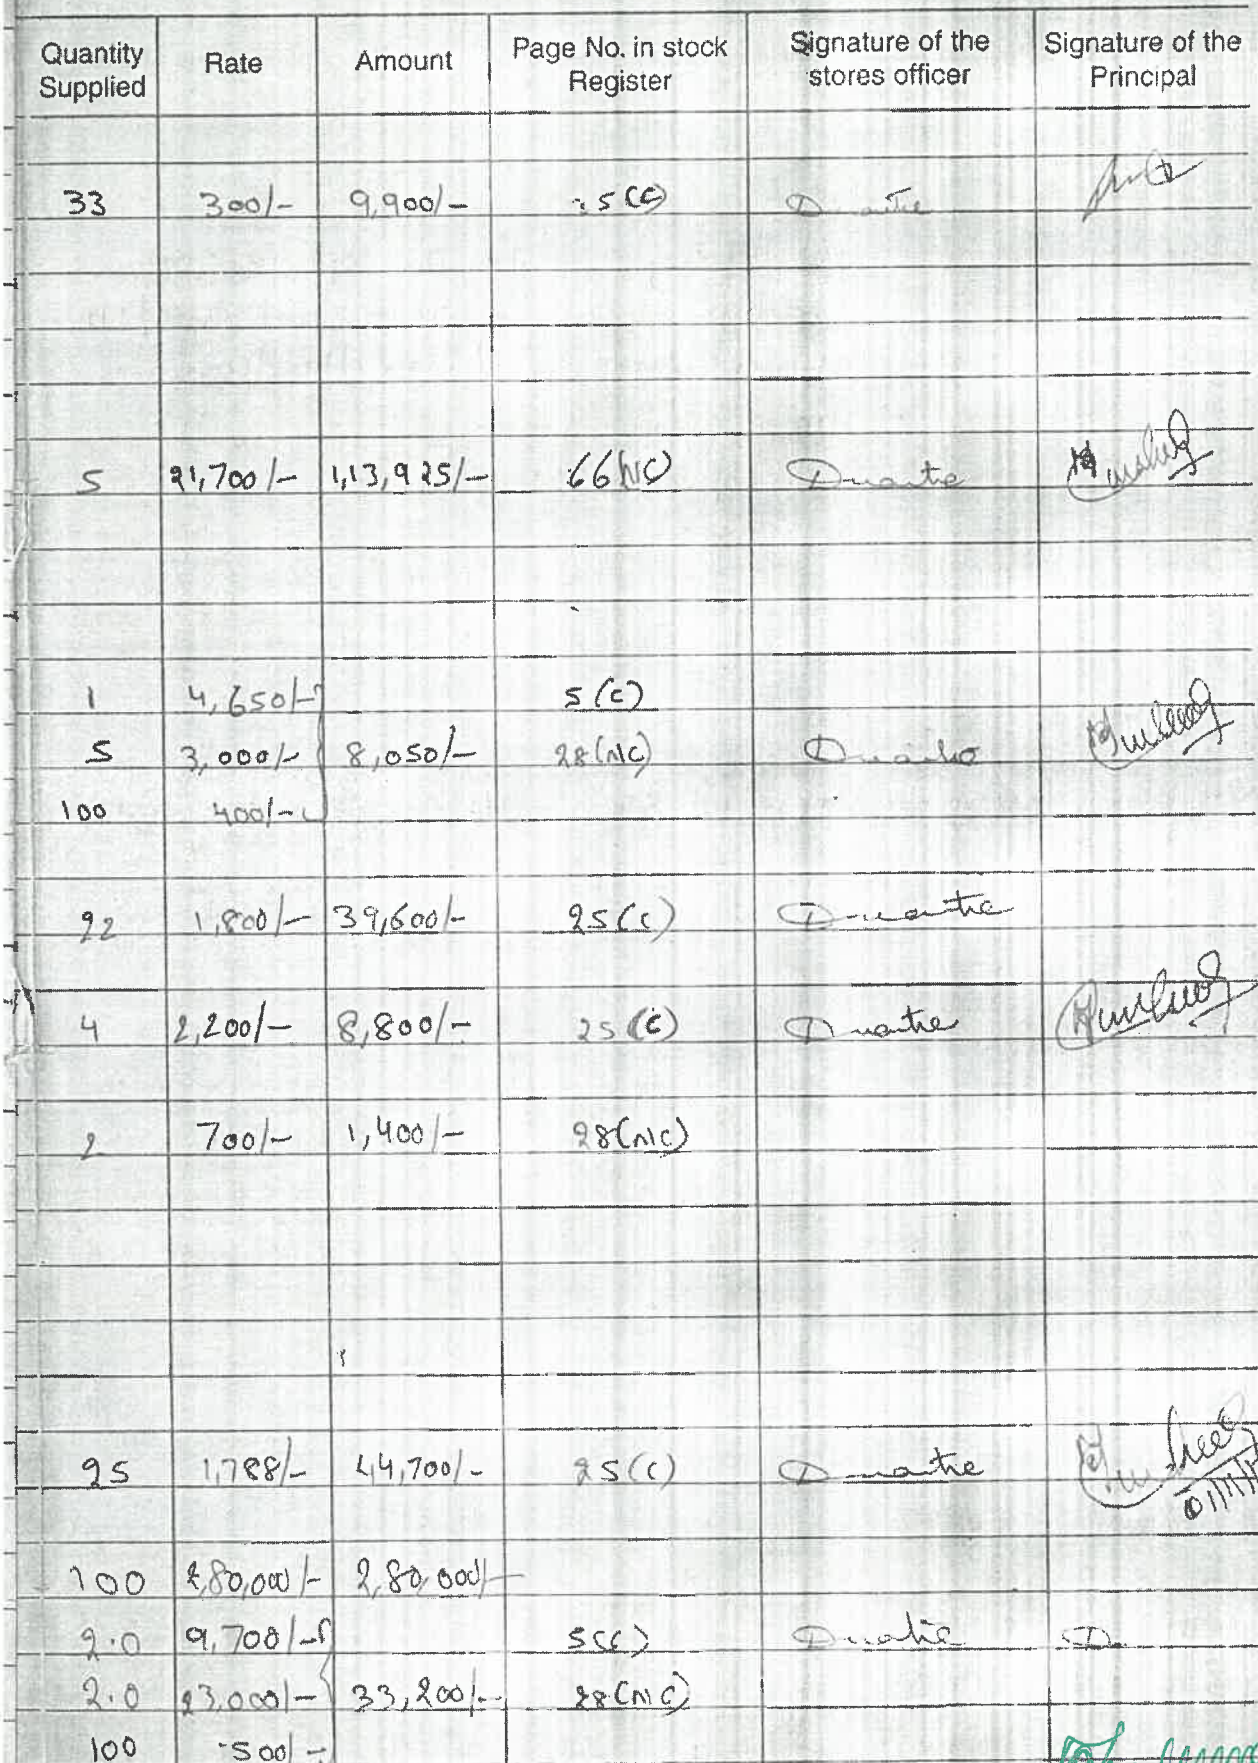 Quantity Supplied | Rate | Amount | Page No. in stock Register | Signature of the stores officer | Signature of the Principal
33 | 300/- | 9,900/- | 25(C)
5 | 21,700/- | 1,13,925/- | 66 N/C | Duarte
1 | 4,650/- | | 5(C)
5 | 3,000/- | 8,050/- | 28(N/C)
100 | 400/-
22 | 1,800/- | 39,600/- | 25(C) | Duarte
4 | 2,200/- | 8,800/- | 25(C) | Duarte
2 | 700/- | 1,400/- | 28(N/C)
25 | 1,788/- | 44,700/- | 25(C) | Duarte
100 | 2,80,000/- | 2,80,000/-
2.0 | 9,700/- | | 5(C) | Duarte
2.0 | 23,000/- | 33,200/- | 28(N/C)
100 | 500/-